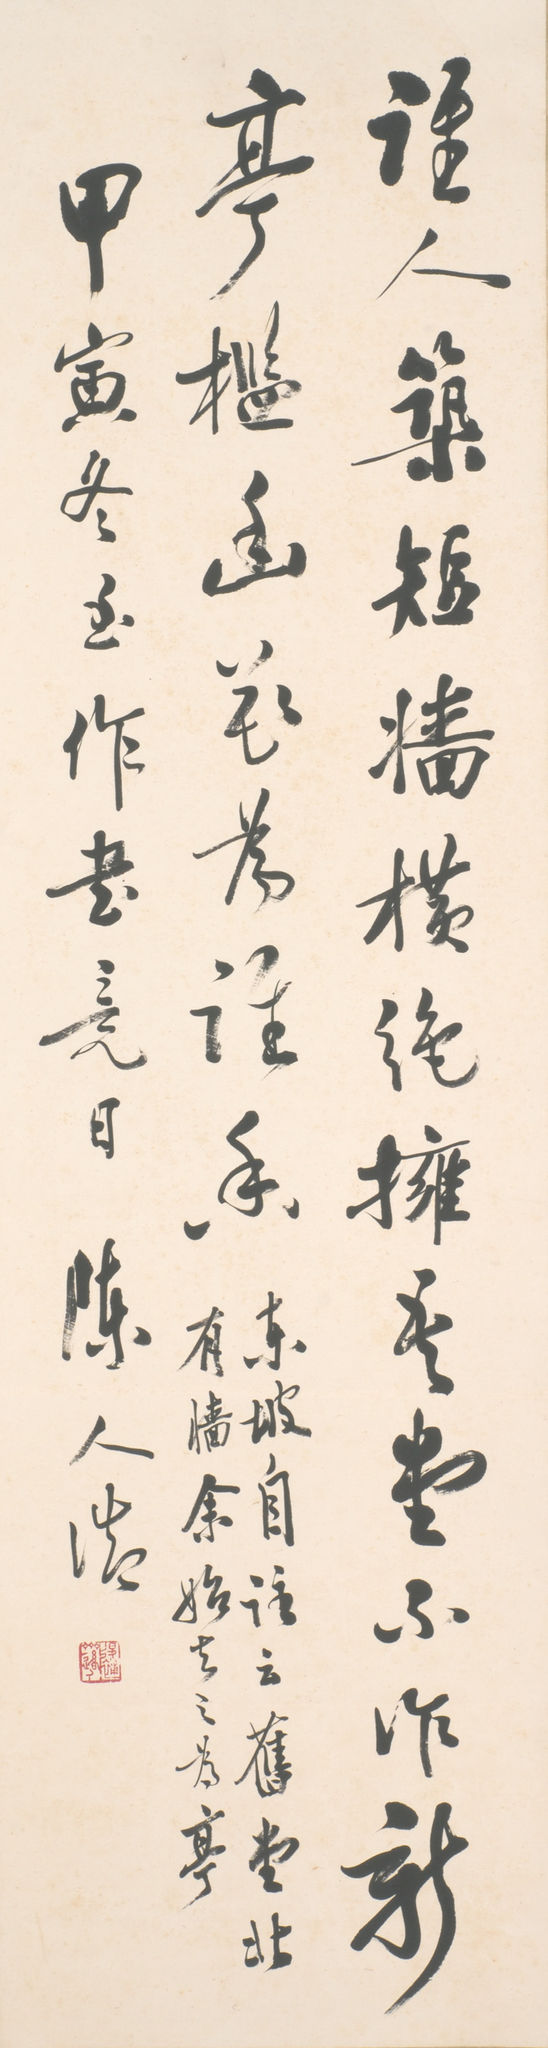 誰人築短牆橫絕擁吾堂不作新
亭檻幽花為誰香
東坡自註云舊堂北
有牆余始去之為亭
甲寅冬至作書竟日 陳人浩